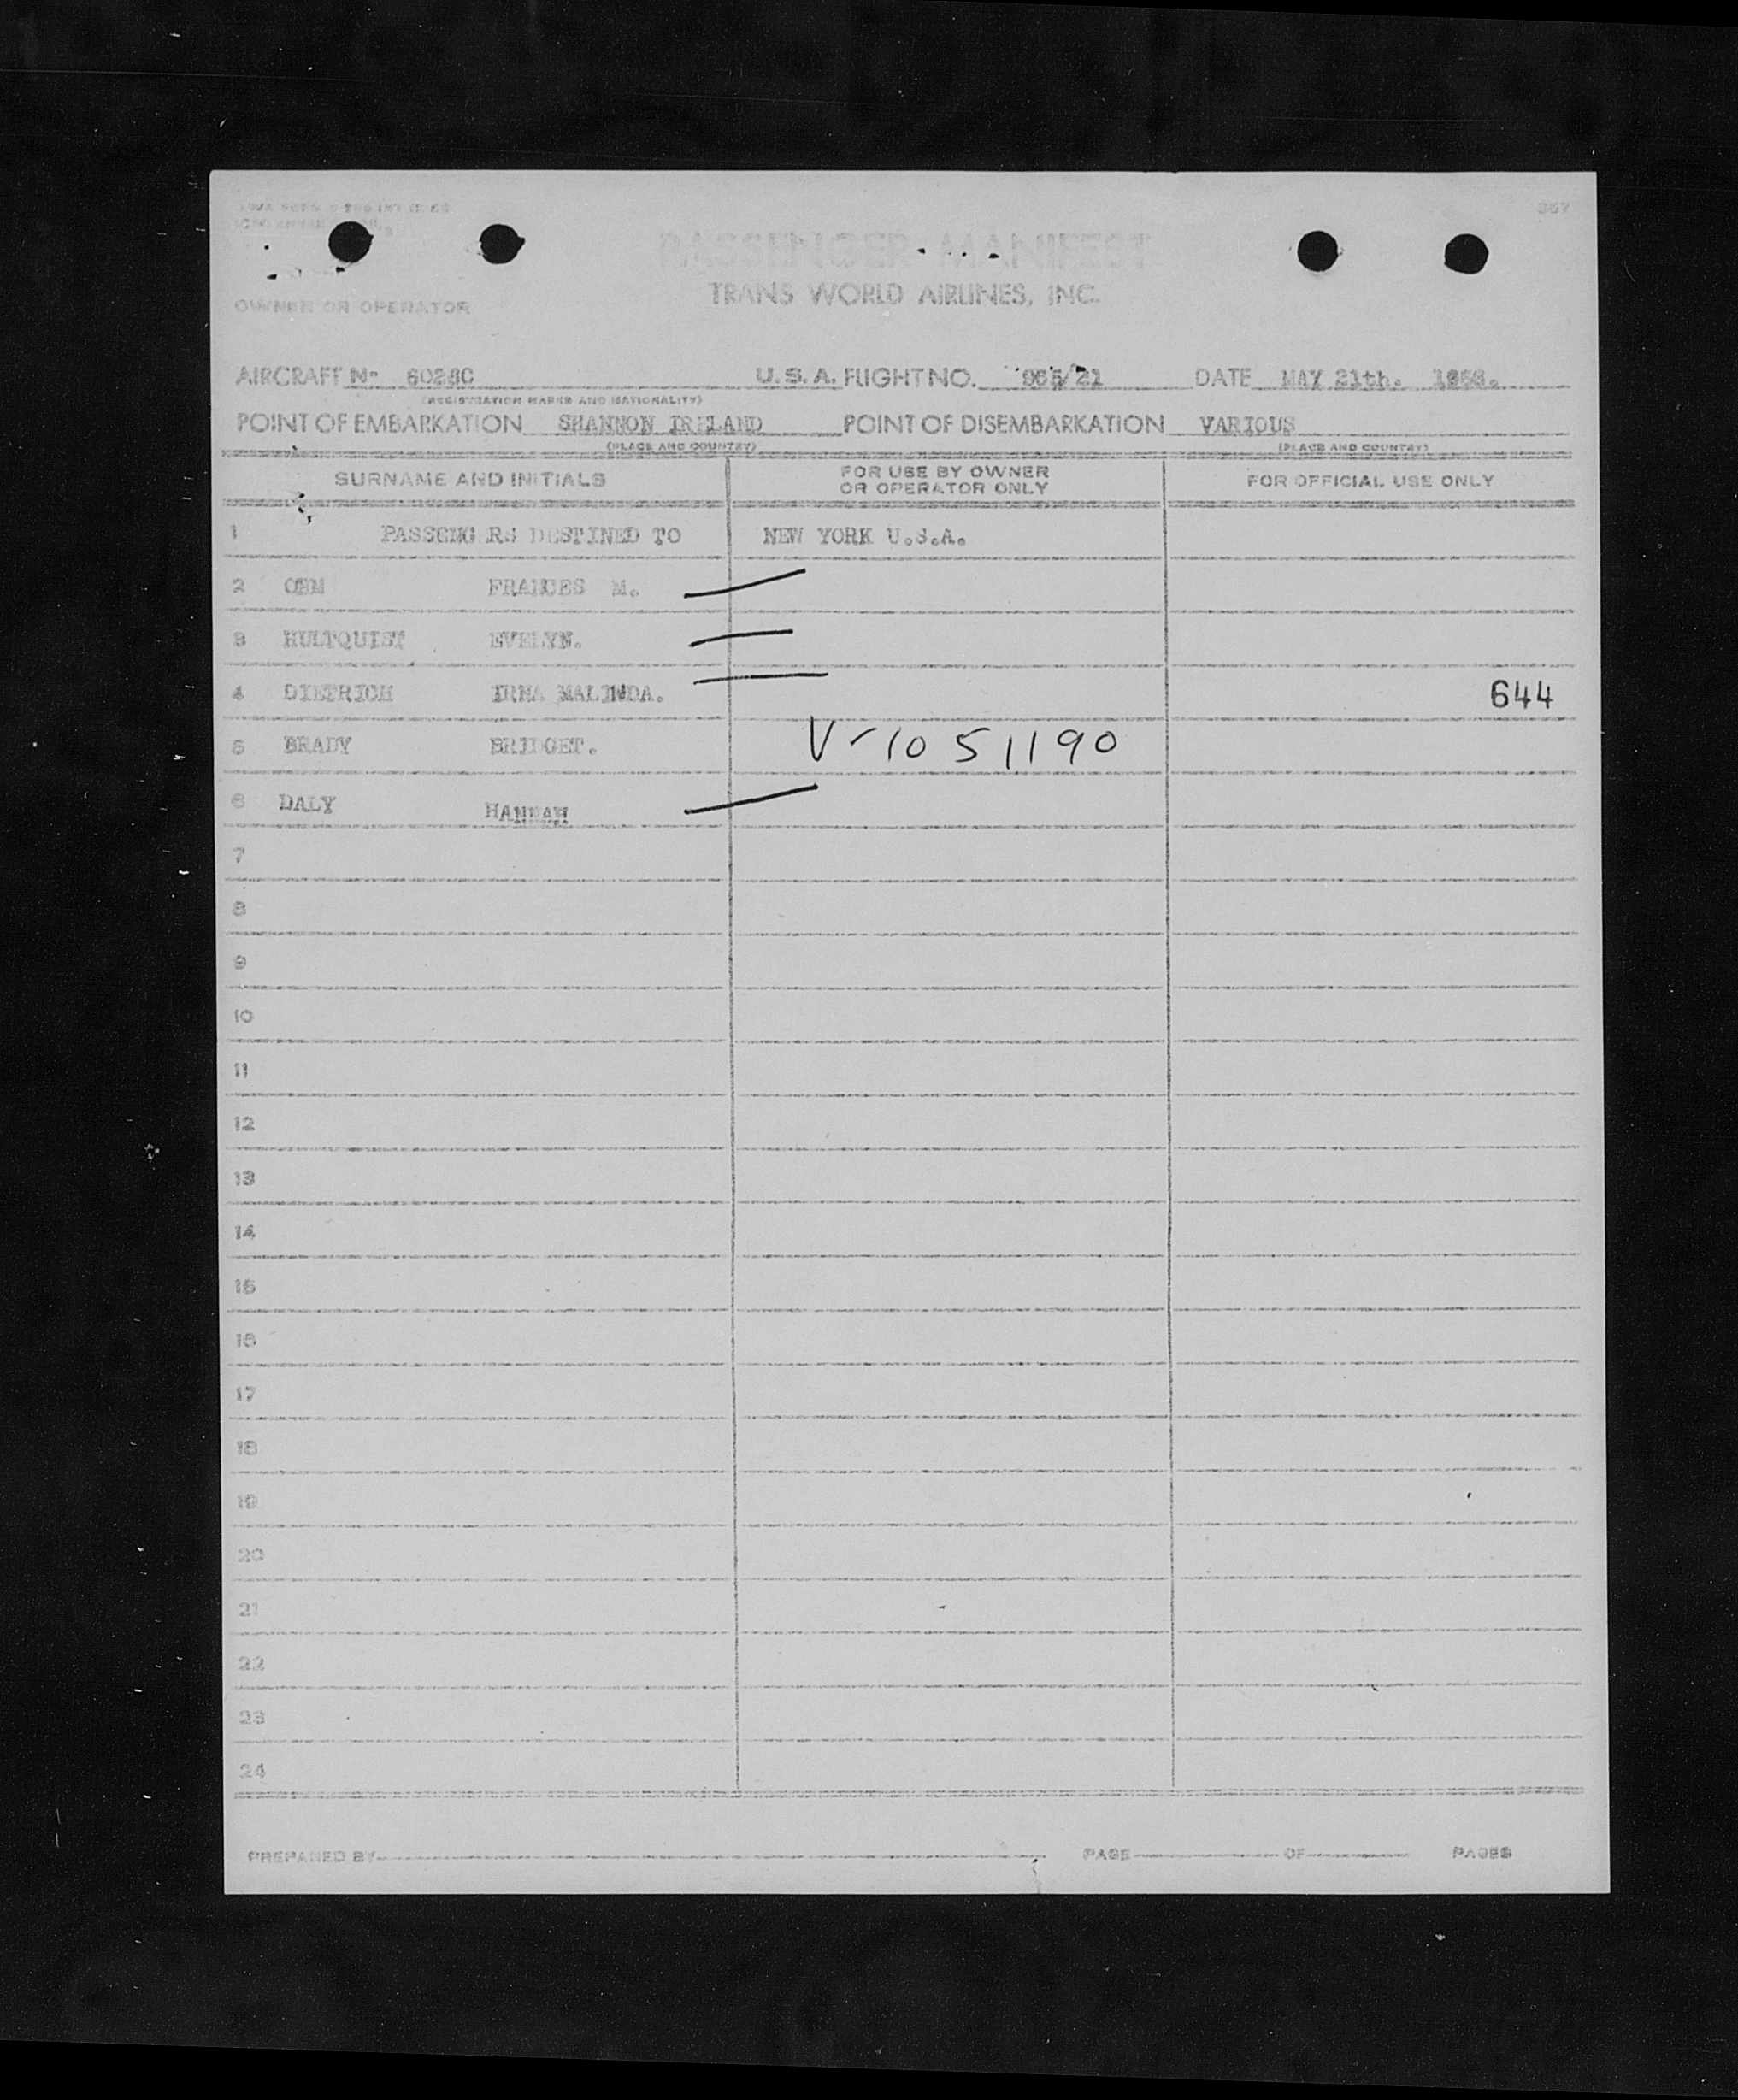 367
PASSENGER MANIFEST
TRANS WORLD AIRLINES, INC.
OWNER OR OPERATOR
AIRCRAFT No 6026C U.S.A. FLIGHT NO. 965/21 DATE MAY 21th.
(REGISTRATION MARKS AND NATIONALITY)
POINT OF EMBARKATION SHANNON IRELAND POINT OF DISEMBARKATION VARIOUS
(PLACE AND COUNTRY) (PLACE AND COUNTRY)
SURNAME AND INITIALS FOR USE BY OWNER OR OPERATOR ONLY FOR OFFICIAL USE ONLY
1 PASSENG RS DESTINED TO NEW YORK U.S.A.
2 FRANCES M.
3 HULTQUIST EVELYN.
4 DIETRICH IRMA MALINDA. 644
5 BRADY BRIDGET. V-1051190
6 DALY HANNAH
7
8
9
10
11
12
13
14
15
16
17
18
19
20
21
22
23
24
PREPARED BY PAGE OF PAGES